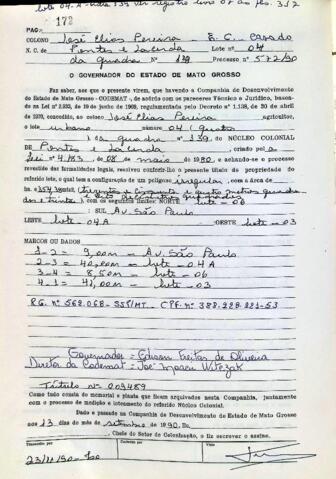 172
PAG:
COLONO José Elias Pereira E. C. casado
N. C. de Pontes e Lacerda Lote nº 04
da quadra nº 139 Processo nº 572/90
O GOVERNADOR DO ESTADO DE MATO GROSSO
Faz saber, aos que o presente virem, que havendo a Companhia de Desenvolvimento
do Estado de Mato Grosso - CODEMAT -, de acôrdo com os pareceres Técnico e Jurídico, basean-
na Lei nº de 19 de junho de 1969, regulamentada pelo Decreto nº 1.138, de 20 de abril
de 1970, concedido, ao colono José Elias Pereira agricultor,
o lote urbano número 04 (Quatro)
da quadra nº 139 do NÚCLEO COLONIAL
DE Pontes e Lacerda, criado pela
Lei 4.153 de 08 de maio de 1980, e achando-se o processo
revestido das formalidades legais, resolveu conferir-lhe o presente título de propriedade do
referido lote, o qual tem a configuração de um polígono irregular, com a área de
354
com os seguintes limites: NORTE lote-06
SUL Av. São Paulo
LESTE lote-04A OESTE lote-03
MARCOS OU DADOS
1-2 = 9,00m - Av. São Paulo
2-3 = 40,00m - lote-04A
3-4 = 8,50m - lote-06
4-1 = 41,00m - lote-03
RG. nº 562.068-SSP/MT CPF. nº 388.228.221-53
Governador - Edison Freitas de Oliveira
Diretor da Codemat - José
Título nº 009489
Como tudo consta do memorial e planta que ficam arquivados nesta Companhia, juntamente
com o processo de medição e loteamento do referido Núcleo Colonial.
Dado e passado na Companhia de Desenvolvimento do Estado de Mato Grosso
aos 13 dias do mês de setembro de 1990. Eu,
Chefe do Setor de Colonização, fiz escrever e assino.
Transcrito por Conferido em Visto
23/11/90